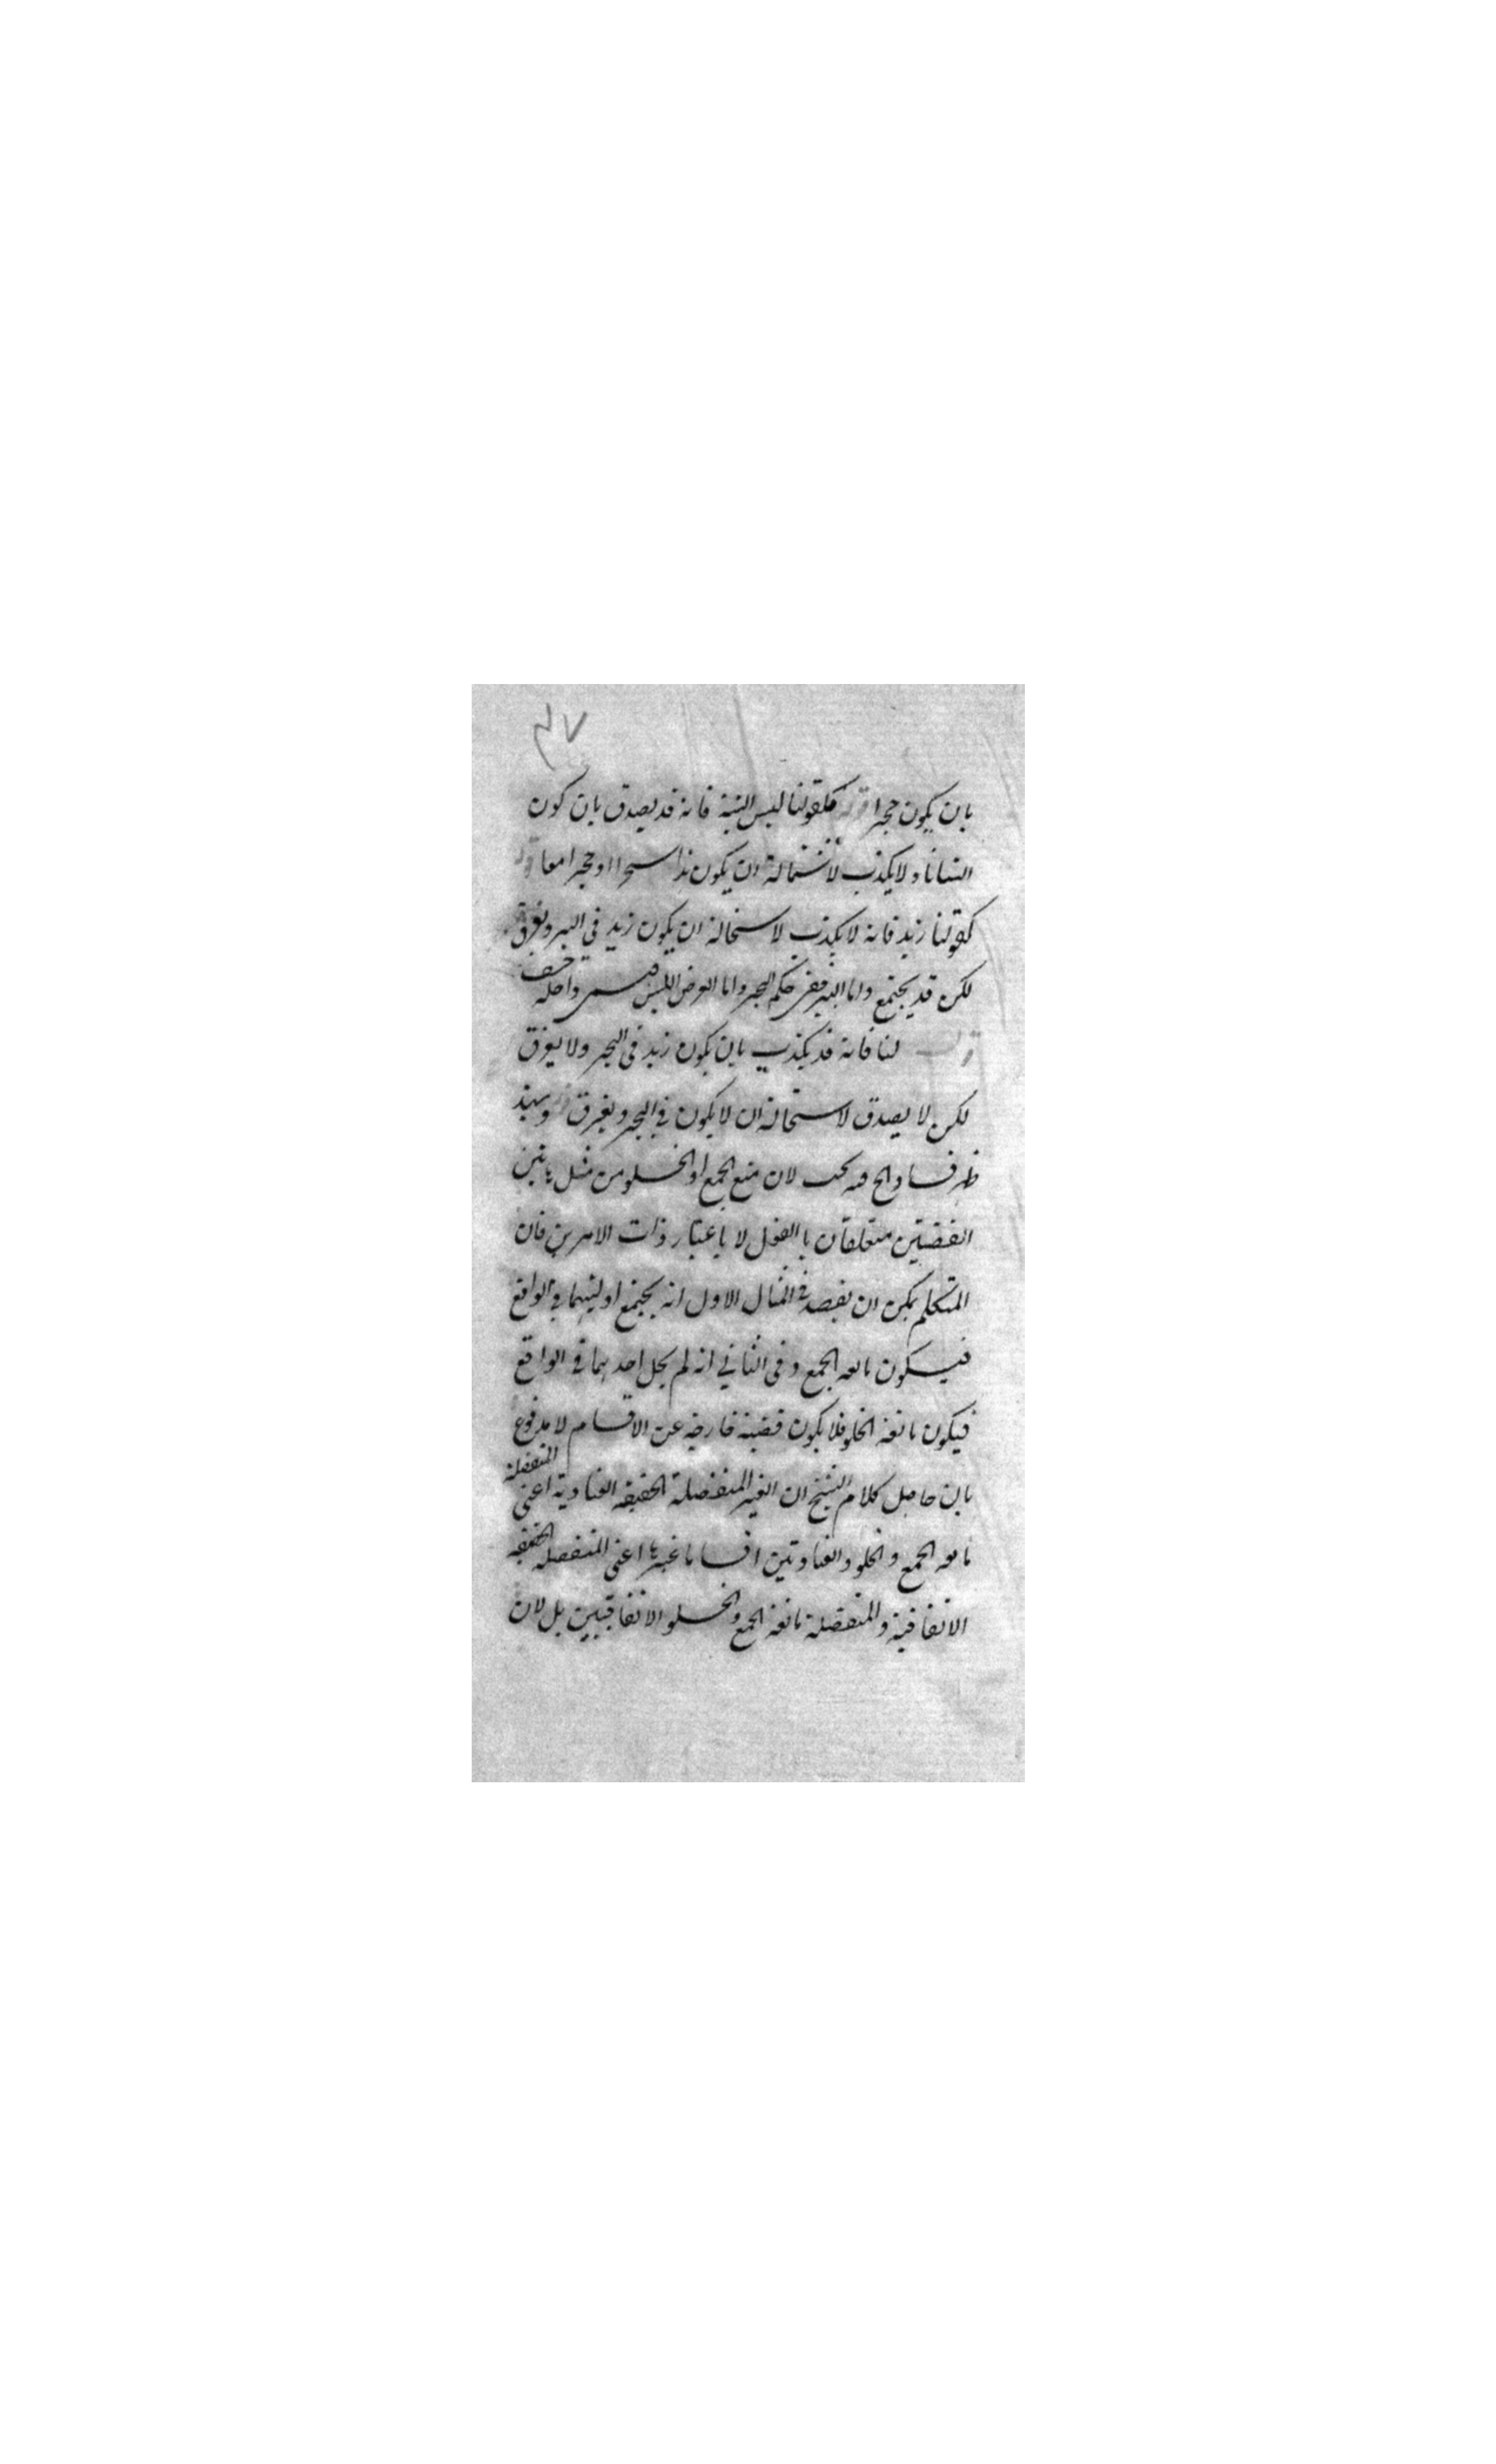 ٤٧
بان يكون حجرا قوله كقولنا ليس البتة فانه قد يصدق بان كون
انسانا ولا يكذب لاستحالة ان يكون هذا شجرا او حجرا معا قوله
كقولنا زيد فانه لا يكذب لاستحالة ان يكون زيد في البر ويغرق
لكن قد يجتمع واما البر ففي حكم البحر واما العرض
لنا فانه قد يكذب بان يكون زيد في البحر ولا يغرق
لكن لا يصدق لاستحالة ان لا يكون في البحر ويغرق وبهذا
ظهر لان منع الجمع او الخلو من مثل هاتين
القضيتين متعلقان بالقول لا باعتبار ذات الامرين فان
المتكلم يمكن ان يقصد في المثال الاول انه يجتمع في الواقع
فيكون مانعه الجمع وفي الثاني انه لم يخل احدهما في الواقع
فيكون مانعة الخلو فلا يكون قضية خارجة عن الاقسام لا مدفوع
بان حاصل كلام الشيخ ان الغير المنفصلة الحقيقه العنادية اعنى المنفصلة
مانعه الجمع والخلو العنادتين اقساما غيرها اعنى المنفصله الحقيقه
الاتفاقية والمنفصلة مانعة الجمع والخلو الاتفاقيين بل لان